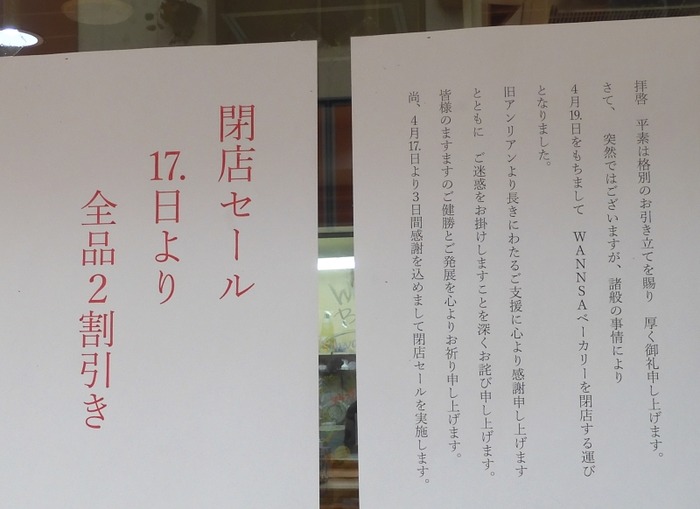 閉店セール
17.日より
全品2割引き
拝啓　平素は格別のお引き立てを賜り　厚く御礼申し上げます。
さて、　突然ではございますが、諸般の事情により
4月19.日をもちまして　WANNSAベーカリーを閉店する運び
となりました。
旧アンリアンより長きにわたるご支援に心より感謝申し上げます
とともに　ご迷惑をお掛けしますことを深くお詫び申し上げます。
皆様のますますのご健勝とご発展を心よりお祈り申し上げます。
尚、4月17.日より3日間感謝を込めまして閉店セールを実施します。